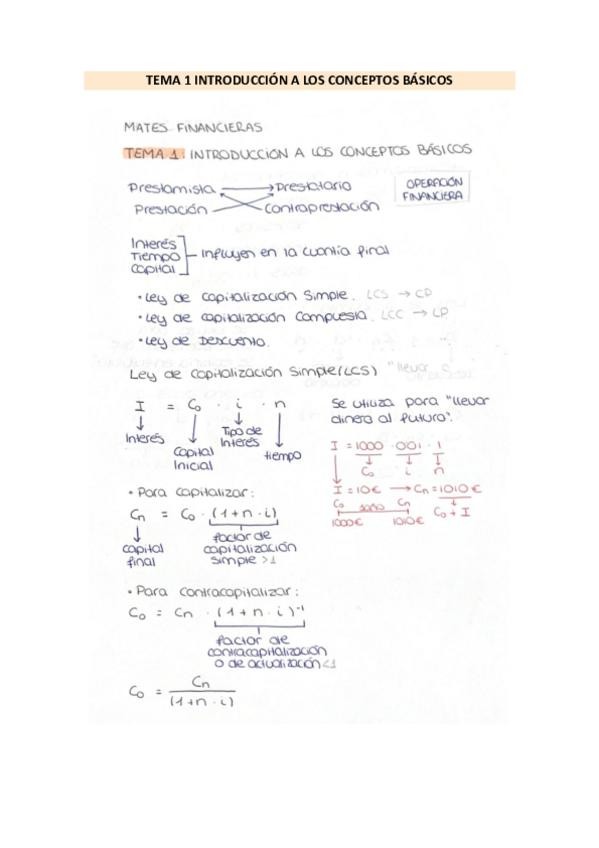 TEMA 1 INTRODUCCIÓN A LOS CONCEPTOS BÁSICOS
MATES FINANCIERAS
TEMA 1: INTRODUCCIÓN A LOS CONCEPTOS BÁSICOS
Prestamista → Prestatario
Prestación Contraprestación
OPERACIÓN
FINANCIERA
Interés
Tiempo
Capital
Influyen en la cuantía final
• Ley de Capitalización Simple. LCS → CP
• Ley de Capitalización Compuesta. LCC → LP
• Ley de Descuento.
Ley de Capitalización Simple (LCS) "llevar
I = C₀ · i · n
Interés
Capital
Inicial
Tipo de
Interés
tiempo
Se utiliza para "llevar
dinero al futuro".
I = 1000 · 0'01 · 1
C₀ i n
I = 10€ → Cn = 1010€
C₀ Cn
C₀ + I
1000€ 1010€
• Para capitalizar:
Cn = C₀ · (1 + n · i)
capital
final
factor de
capitalización
simple >1
• Para contracapitalizar:
C₀ = Cn · (1 + n · i)⁻¹
factor de
contracapitalización
o de actualización <1
C₀ = Cn
(1 + n · i)